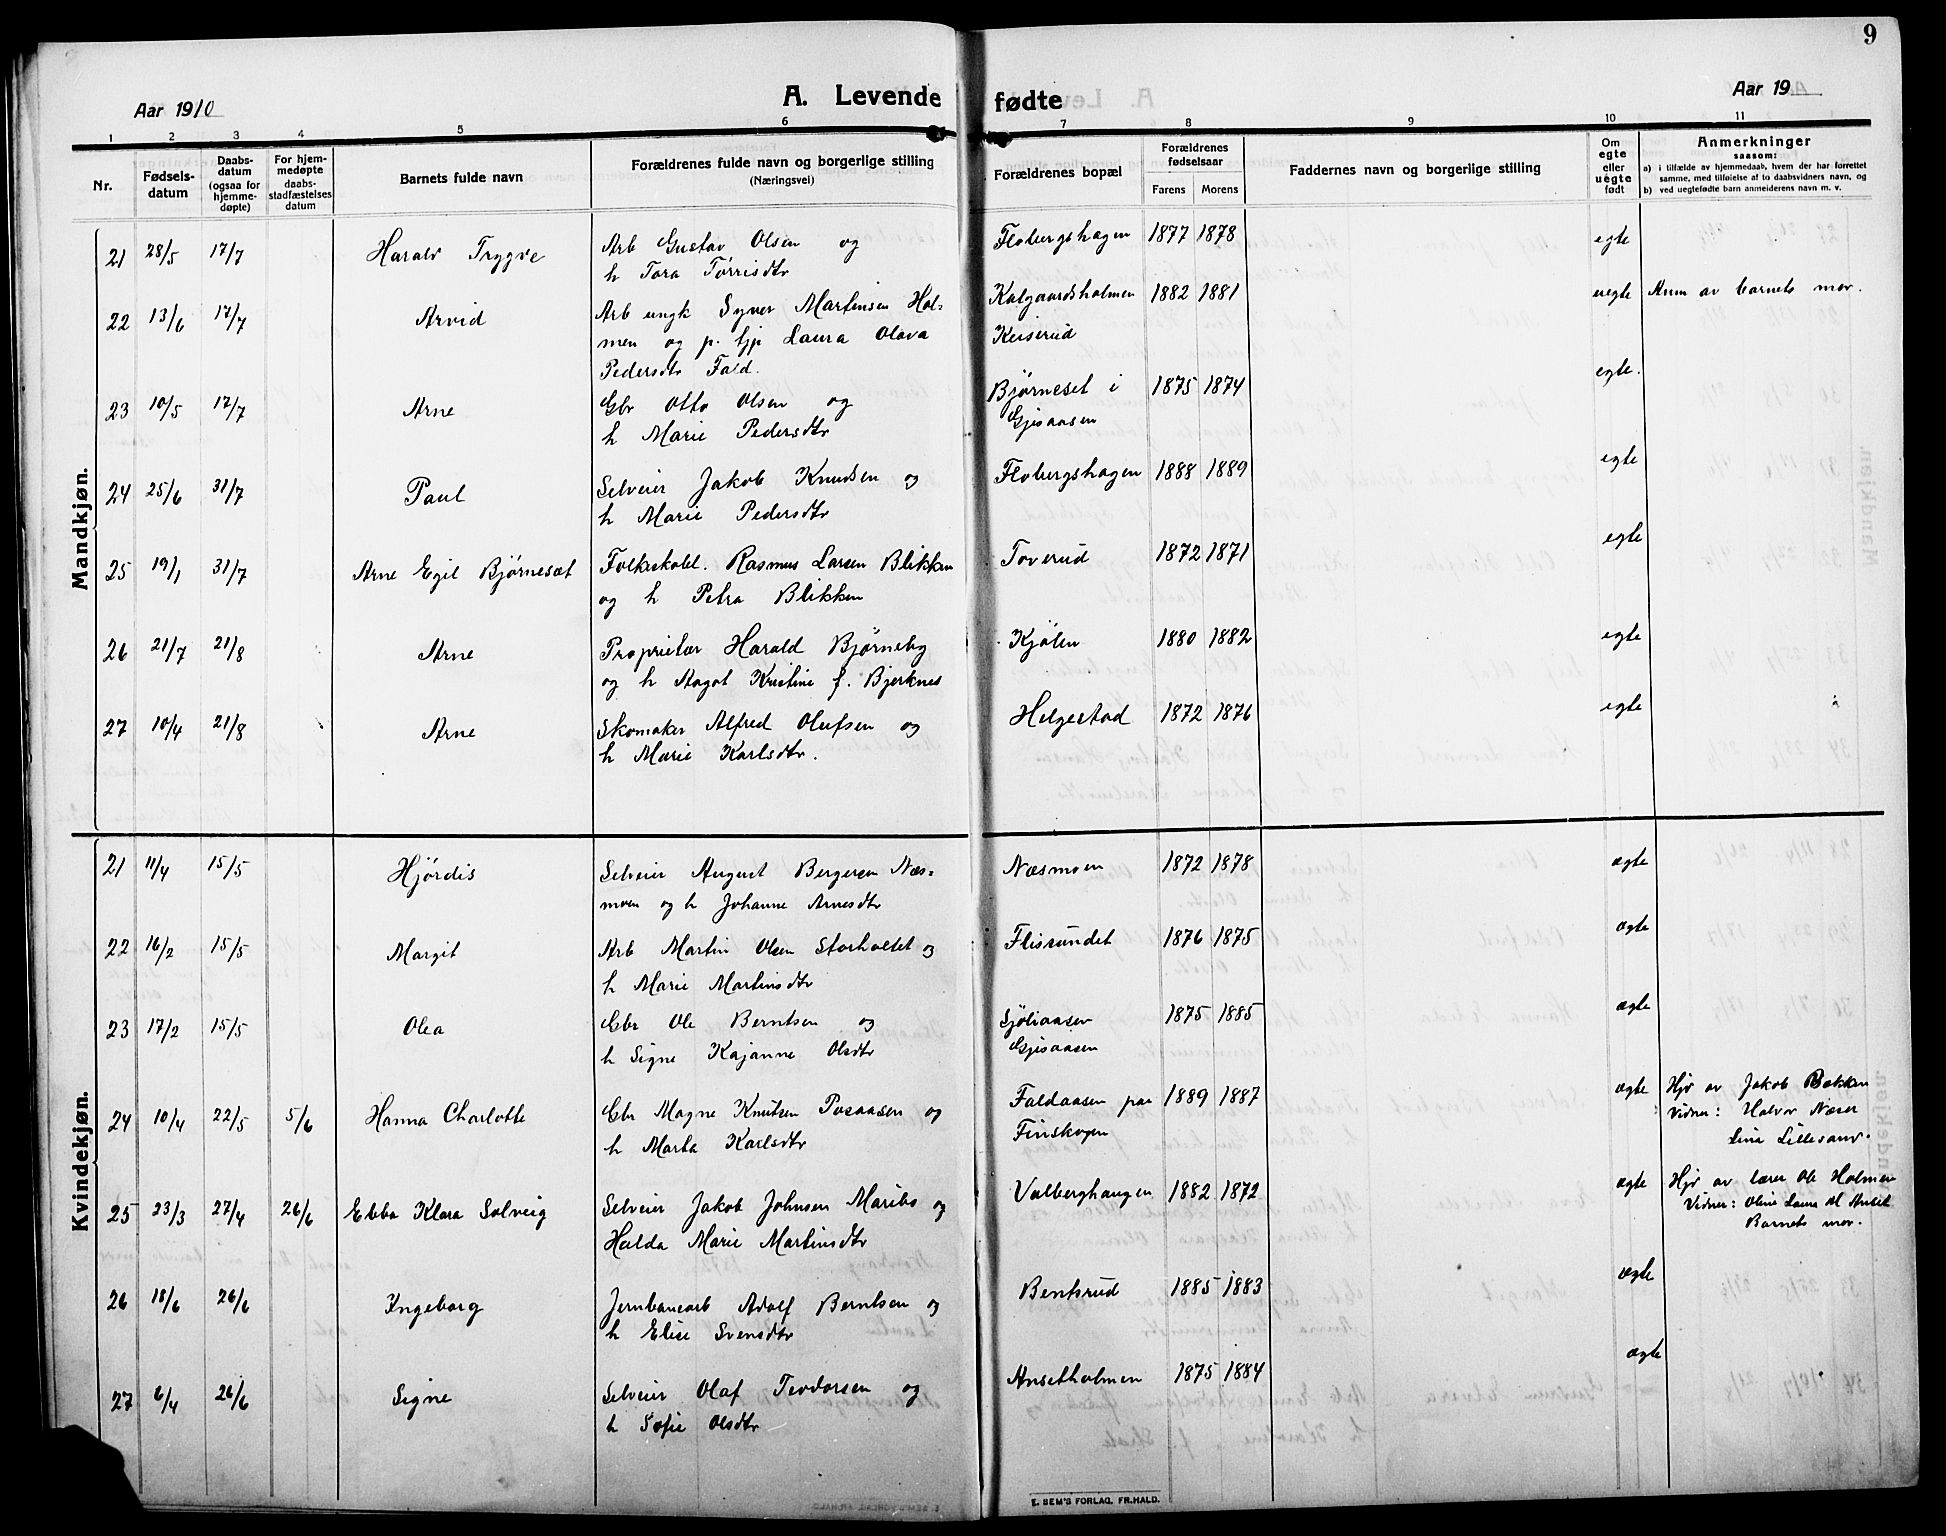 9
Aar 1910
A. Levende fødte
Aar 19
1 2 3 4 5 6 7 8 9 10 11
Nr.
Fødsels-
datum
Daabs-
datum
(ogsaa for
hjemme-
døpte)
For hjem-
medøpte
daabs-
stadfæstelses
datum
Barnets fulde navn
Forældrenes fulde navn og borgerlige stilling
(Næringsvei)
Forældrenes bopæl
Forældrenes
fødselsaar
Farens Morens
Faddernes navn og borgerlige stilling
Om
egte
eller
uegte
født
Anmerkninger
saasom:
a) i tilfælde av hjemmedaab, hvem der har forrettet
samme, med tilføielse af to daabsvidners navn, og
b) ved uegtefødte barn anmelderens navn m. v.
Mandkjøn.
21 28/5 17/7 Harald Trygve Arb Gustav Olsen og Flobergshagen 1877 1878 egte
h Tora Tørrisdtr
22 13/6 17/7 Arvid Arb ungk Syver Martinsen Hol- Kalgaardsholmen 1882 1881 uegte Anm av barnets mor.
men og p. tjp Laura Olava Keiserud
Pedersdtr Fald.
23 10/5 17/7 Arne Gbr Otto Olsen og Bjørneset i 1875 1874 egte.
h Marie Pedersdtr Gjesaasen
24 25/6 31/7 Paul Selveier Jakob Knudsen og Flobergshagen 1888 1889 egte
h Marie Pedersdtr
25 19/1 31/7 Arne Egil Bjørnesæt Folkeskolel. Rasmus Larsen Blikken Toverud 1872 1871 egte
og h Petra Blikken
26 21/7 21/8 Arne Proprietær Harald Bjørneby Kjølen 1880 1882 egte
og h Aagot Kristine f. Bjerknes
27 10/4 21/8 Arne Skomaker Alfred Olufsen og Helgestad 1872 1876 egte
h Marie Karlsdtr.
Kvindekjøn.
21 11/4 15/5 Hjørdis Selveier August Bergersen Næs- Næsmoen 1872 1878 ægte
moen og h Johanne Arnesdtr
22 16/2 15/5 Margit Arb Martin Olsen Storholtet og Flissundet 1876 1875 ægte
h Marie Martinsdtr
23 17/2 15/5 Olea Gbr Ole Berntsen og Sjøliaasen 1875 1885 ægte
h Signe Kajanne Olsdtr Gjesaasen
24 10/4 22/5 5/6 Hanna Charlotte Gbr Magne Knutsen Posaasen og Faldaasen paa 1889 1887 ægte Hjd av Jakob Bakken
h Marta Karlsdtr Finskogen Vidner: Halvor Næser
Lina Lillesand.
25 23/3 27/4 26/6 Ebba Klara Solveig Selveier Jakob Johnsen Maribo og Valberghaugen 1882 1872 ægte Hjd av lærer Ole Holmen
Halda Marie Martinsdtr Vidner: Oline Laura M Anset
Barnets mor.
26 18/6 26/6 Ingeborg Jernbanearb Adolf Berntsen og Bentsrud 1885 1883 ægte
h Elise Svensdtr
27 6/4 26/6 Signe Selveier Olaf Teodorsen og Ansetholmen 1875 1884 ægte
h Sofie Olsdtr
E. SEM'S FORLAG, FR.HALD.